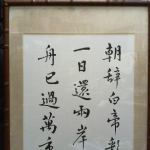 朝辞白帝彩
一日還兩岸
舟已過萬重